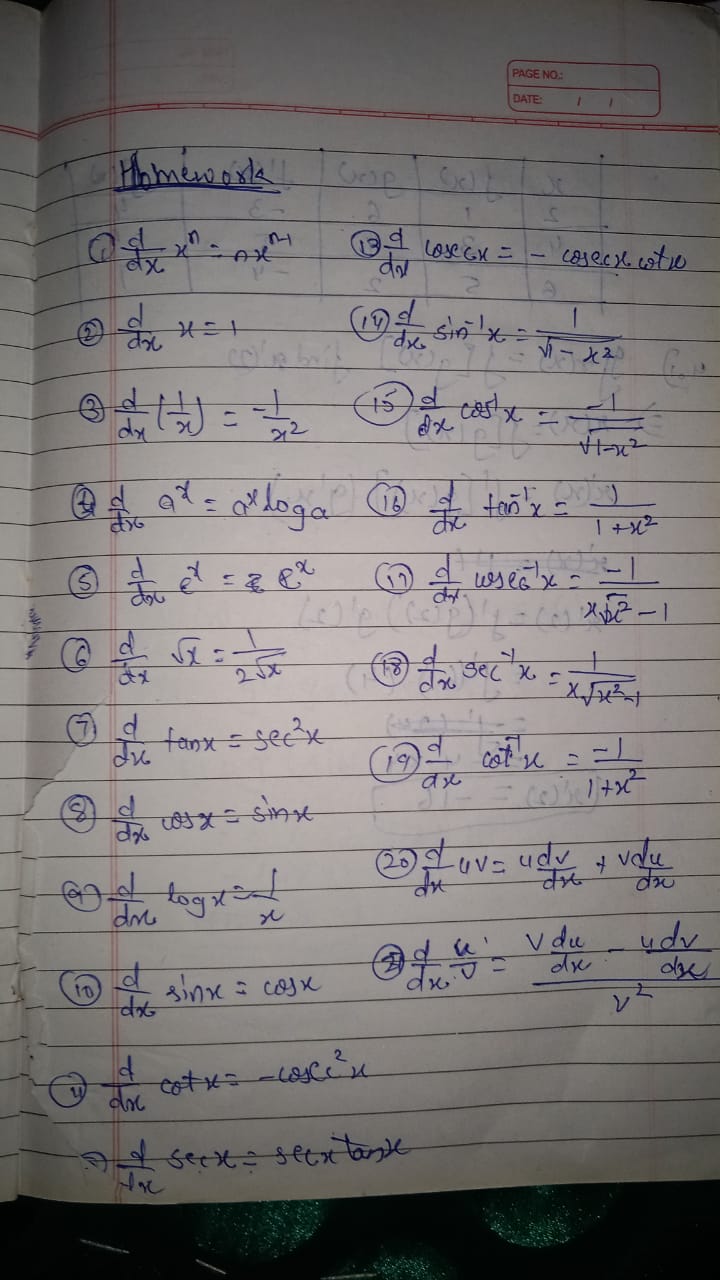 PAGE NO.:
DATE: / /
Homework
① d/dx xⁿ = nxⁿ⁻¹
② d/dx x = 1
③ d/dx (1/x) = -1/x²
④ d/dx aˣ = aˣ log a
⑤ d/dx eˣ = eˣ
⑥ d/dx √x = 1/2√x
⑦ d/dx tanx = sec²x
⑧ d/dx cosx = sinx
⑨ d/dx logx = 1/x
⑩ d/dx sinx = cosx
⑪ d/dx cotx = -cosec²x
d/dx secx = secx tanx
⑬ d/dx cosecx = - cosecx cotx
⑭ d/dx sin⁻¹x = 1/√1-x²
⑮ d/dx cos⁻¹x = -1/√1-x²
⑯ d/dx tan⁻¹x = 1/1+x²
⑰ d/dx cosec⁻¹x = -1/x√x²-1
⑱ d/dx sec⁻¹x = 1/x√x²-1
⑲ d/dx cot⁻¹x = -1/1+x²
⑳ d/dx uv = u dv/dx + v du/dx
㉑ d/dx u/v = v du/dx - u dv/dx / v²